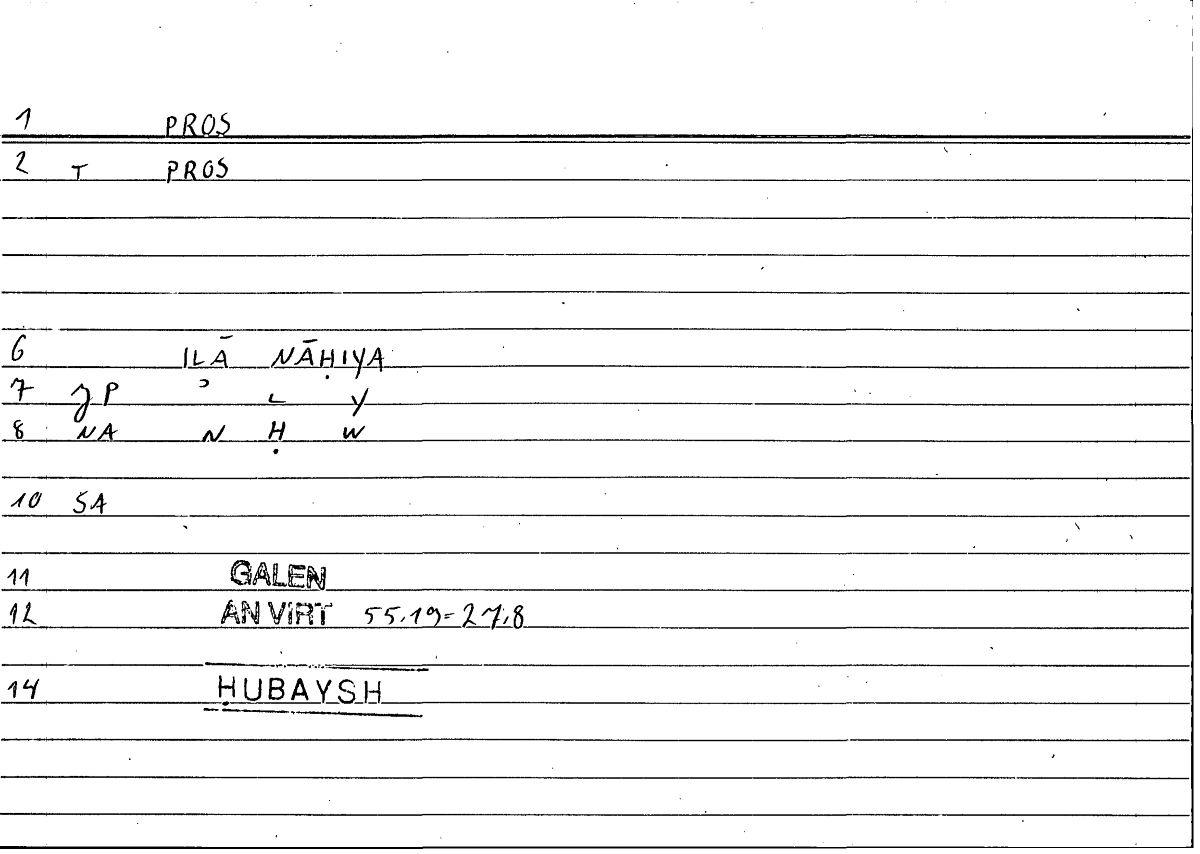 1 PROS
2 T PROS
6 ILĀ NĀḤIYA
7 JP ʾ L Y
8 NA N Ḥ W
10 SA
11 GALEN
12 AN VIRT 55,19=27,8
14 ḤUBAYSH